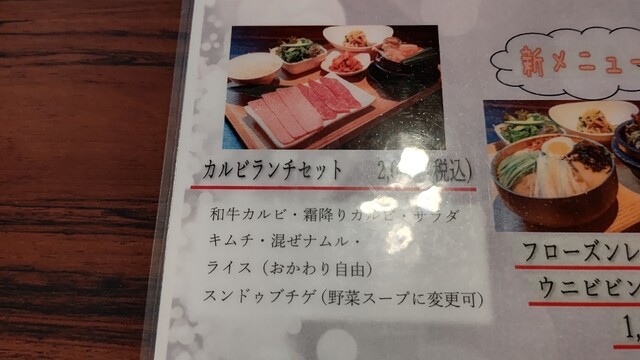 新メニュー
カルビランチセット 税込)
和牛カルビ・霜降りカルビ・サラダ
キムチ・混ぜナムル・
ライス（おかわり自由）
スンドゥブチゲ(野菜スープに変更可)
フローズンレ
ウニビビン
1,